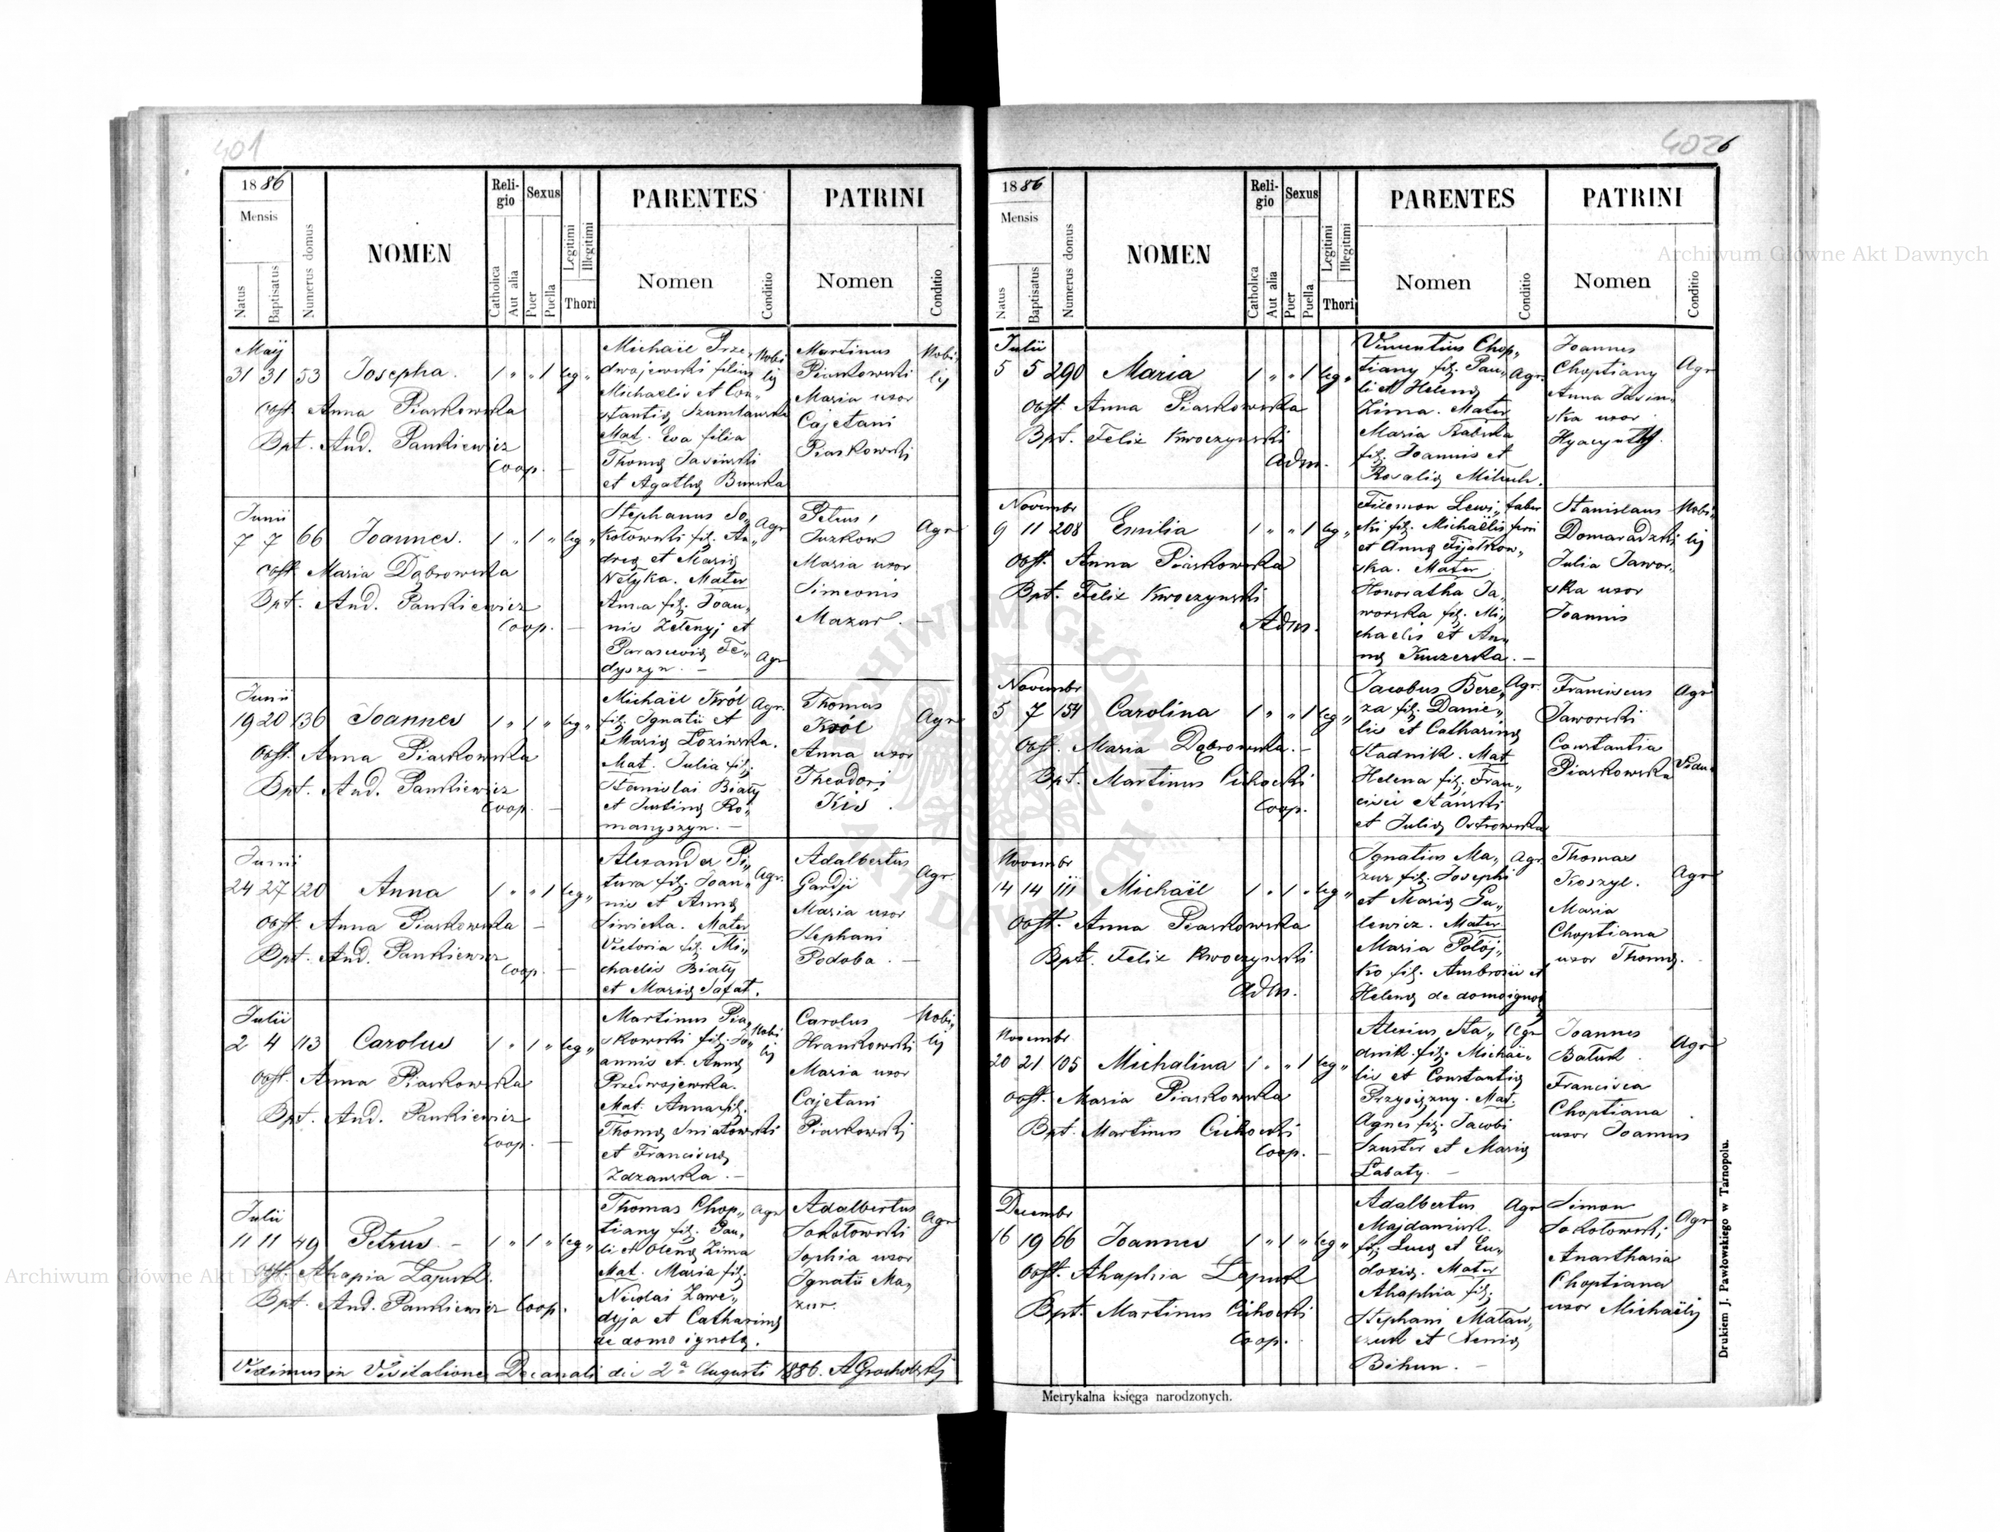 401
1886
Mensis
Natus
Baptisatus
Numerus domus
NOMEN
Religio
Catholica
Aut alia
Sexus
Puer
Puella
Legitimi
Illegitimi
Thori
PARENTES
Nomen
Conditio
PATRINI
Nomen
Conditio
Maij
31 31 53 Josepha. 1 " " 1 leg "
Obst. Anna Piaskowska
Bpt. And. Pankiewicz
Coop. —
Michaël Prze-
dwojewski filius
Michaëlis et Con-
stantiæ Szumlanska
Mat. Eva filia
Thomæ Jasinski
et Agathæ Burska
Nobi
lis
Martinus
Piaskowski
Maria uxor
Cajetani
Piaskowski
Nobi-
lis
Junii
7 7 66 Joannes. 1 " 1 " leg "
Obst. Maria Dąbrowska
Bpt. And. Pankiewicz
Coop. —
Stephanus So-
kołowski fil. An-
dreæ et Mariæ
Netyka. Mater
Anna fil. Joan-
nis Zełenyj et
Parascevia Fe-
dyszyn. —
Agr
Agr
Petrus
Juzkow
Maria uxor
Simeonis
Mazur. —
Agr
Junii
19 20 136 Joannes 1 " 1 " leg "
Obst. Anna Piaskowska
Bpt. And. Pankiewicz
Coop. —
Michaël Król
fil. Ignatii et
Mariæ Łozinska.
Mat. Julia fil.
Stanislai Biały
et Justinæ Ro-
manyszyn. —
Agr.
Thomas
Król
Anna uxor
Theodori
Kis.
Agr
Junii
24 27 120 Anna 1 " " 1 leg "
Obst. Anna Piaskowska —
Bpt. And. Pankiewicz
Coop. —
Alexander Pi-
tura fil. Joan-
nis et Annæ
Siwicka. Mater
Victoria fil. Mi-
chaelis Biały
et Mariæ Safat.
Agr.
Adalbertus
Gardji
Maria uxor
Stephani
Podoba. —
Agr.
Julii
2 4 113 Carolus 1 " 1 " leg "
Obst. Anna Piaskowska
Bpt. And. Pankiewicz
Coop. —
Martinus Pia-
skowski fil. Jo-
annis et Annæ
Przedwojewska.
Mat. Anna fil.
Thomæ Sniatowski
et Franciscæ
Zdzanska. —
Nobi
lis
Carolus
Hrankowski
Maria uxor
Cajetani
Piaskowski
Nobi-
lis
Julii
11 11 49 Petrus. — 1 " 1 " leg "
Obst. Ahapia Łapuk.
Bpt. And. Pankiewicz Coop.
Thomas Chop-
tiany fil. Pau-
li et Olenæ Zima
Mat. Maria fil.
Nicolai Zawe-
dyja et Catharinæ
de domo ignota.
Agr
Adalbertus
Sokołowski
Sophia uxor
Ignatii Ma-
zur.
Agr
Vidimus in Visitatione Decanali die 2ª Augusti 1886. A Grocholski
402
6
1886
Mensis
Natus
Baptisatus
Numerus domus
NOMEN
Religio
Catholica
Aut alia
Sexus
Puer
Puella
Legitimi
Illegitimi
Thori
PARENTES
Nomen
Conditio
PATRINI
Nomen
Conditio
Julii
5 5 290 Maria 1 " " 1 leg "
Obst. Anna Piaskowska
Bpt. Felix Kwoczynski
Adm.
Vincentius Chop-
tiany fil. Pau-
li et Helenæ
Zima. Mater
Maria Babska
fil. Joannis et
Rosaliæ
Agr.
Joannes
Choptiany
Anna Jasin-
ska uxor
Hyacynthi.
Agr
Novembr
9 11 208 Emilia 1 " " 1 leg "
Obst. Anna Piaskowska
Bpt. Felix Kwoczynski
Adm.
Filemon Lewi-
cki fil. Michaëlis
et Annæ Fijałkow-
ska. Mater
Honoratha Ja-
worska fil. Mi-
chaelis et An-
næ Kuczerka. —
faber
ferri
Stanislaus
Domaradzki
Julia Jawor-
ska uxor
Joannis
Nobi-
lis
Novembr
5 7 154 Carolina 1 " " 1 leg "
Obst. Maria Dąbrowska. —
Bpt. Martinus Cichocki
Coop.
Jacobus Bere-
za fil. Danie-
lis et Catharinæ
Stadnik. Mat
Helena fil. Fran-
cisci Stanski
et Juliæ Ostrowska
Agr.
Franciscus
Jaworski
Constantia
Piaskowska
Agr
Vidua
Novembr
14 14 111 Michaël 1 " 1 " leg "
Obst. Anna Piaskowska
Bpt. Felix Kwoczynski
Adm.
Ignatius Ma-
zur fil. Josephi
et Mariæ Gu-
lewicz. Mater
Maria Połoj-
ko fil. Ambrosii et
Helenæ de domo ignota
Agr
Thomas
Koszyl.
Maria
Choptiana
uxor Thomæ.
Agr
Novembr
20 21 105 Michalina 1 " " 1 leg "
Obst. Maria Piaskowska
Bpt. Martinus Cichocki
Coop. —
Alexius Sta-
dnik fil. Michae-
lis et Constantiæ
Przyoizny. Mat.
Agnes fil. Jacobi
Szuster et Mariæ
Łabaty. —
Agr
Joannes
Batuk.
Francisca
Choptiana
uxor Joannis
Agr
Decembr
16 19 66 Joannes 1 " 1 " leg "
Obst. Ahaphia Łapuk
Bpt. Martinus Cichocki
Coop.
Adalbertus
Majdaniuk
fil. Lucæ et Eu-
doxiæ. Mater
Ahaphia fil.
Stephani Matau-
szuk et Xeniæ
Bihun. —
Agr
Simon
Sokołowski
Anasthasia
Choptiana
uxor Michaëlis
Agr
Metrykalna księga narodzonych.
Drukiem J. Pawłowskiego w Tarnopolu.
Archiwum Główne Akt Dawnych
Archiwum Główne Akt Dawnych
ARCHIWUM GŁÓWNE
AKT DAWNYCH